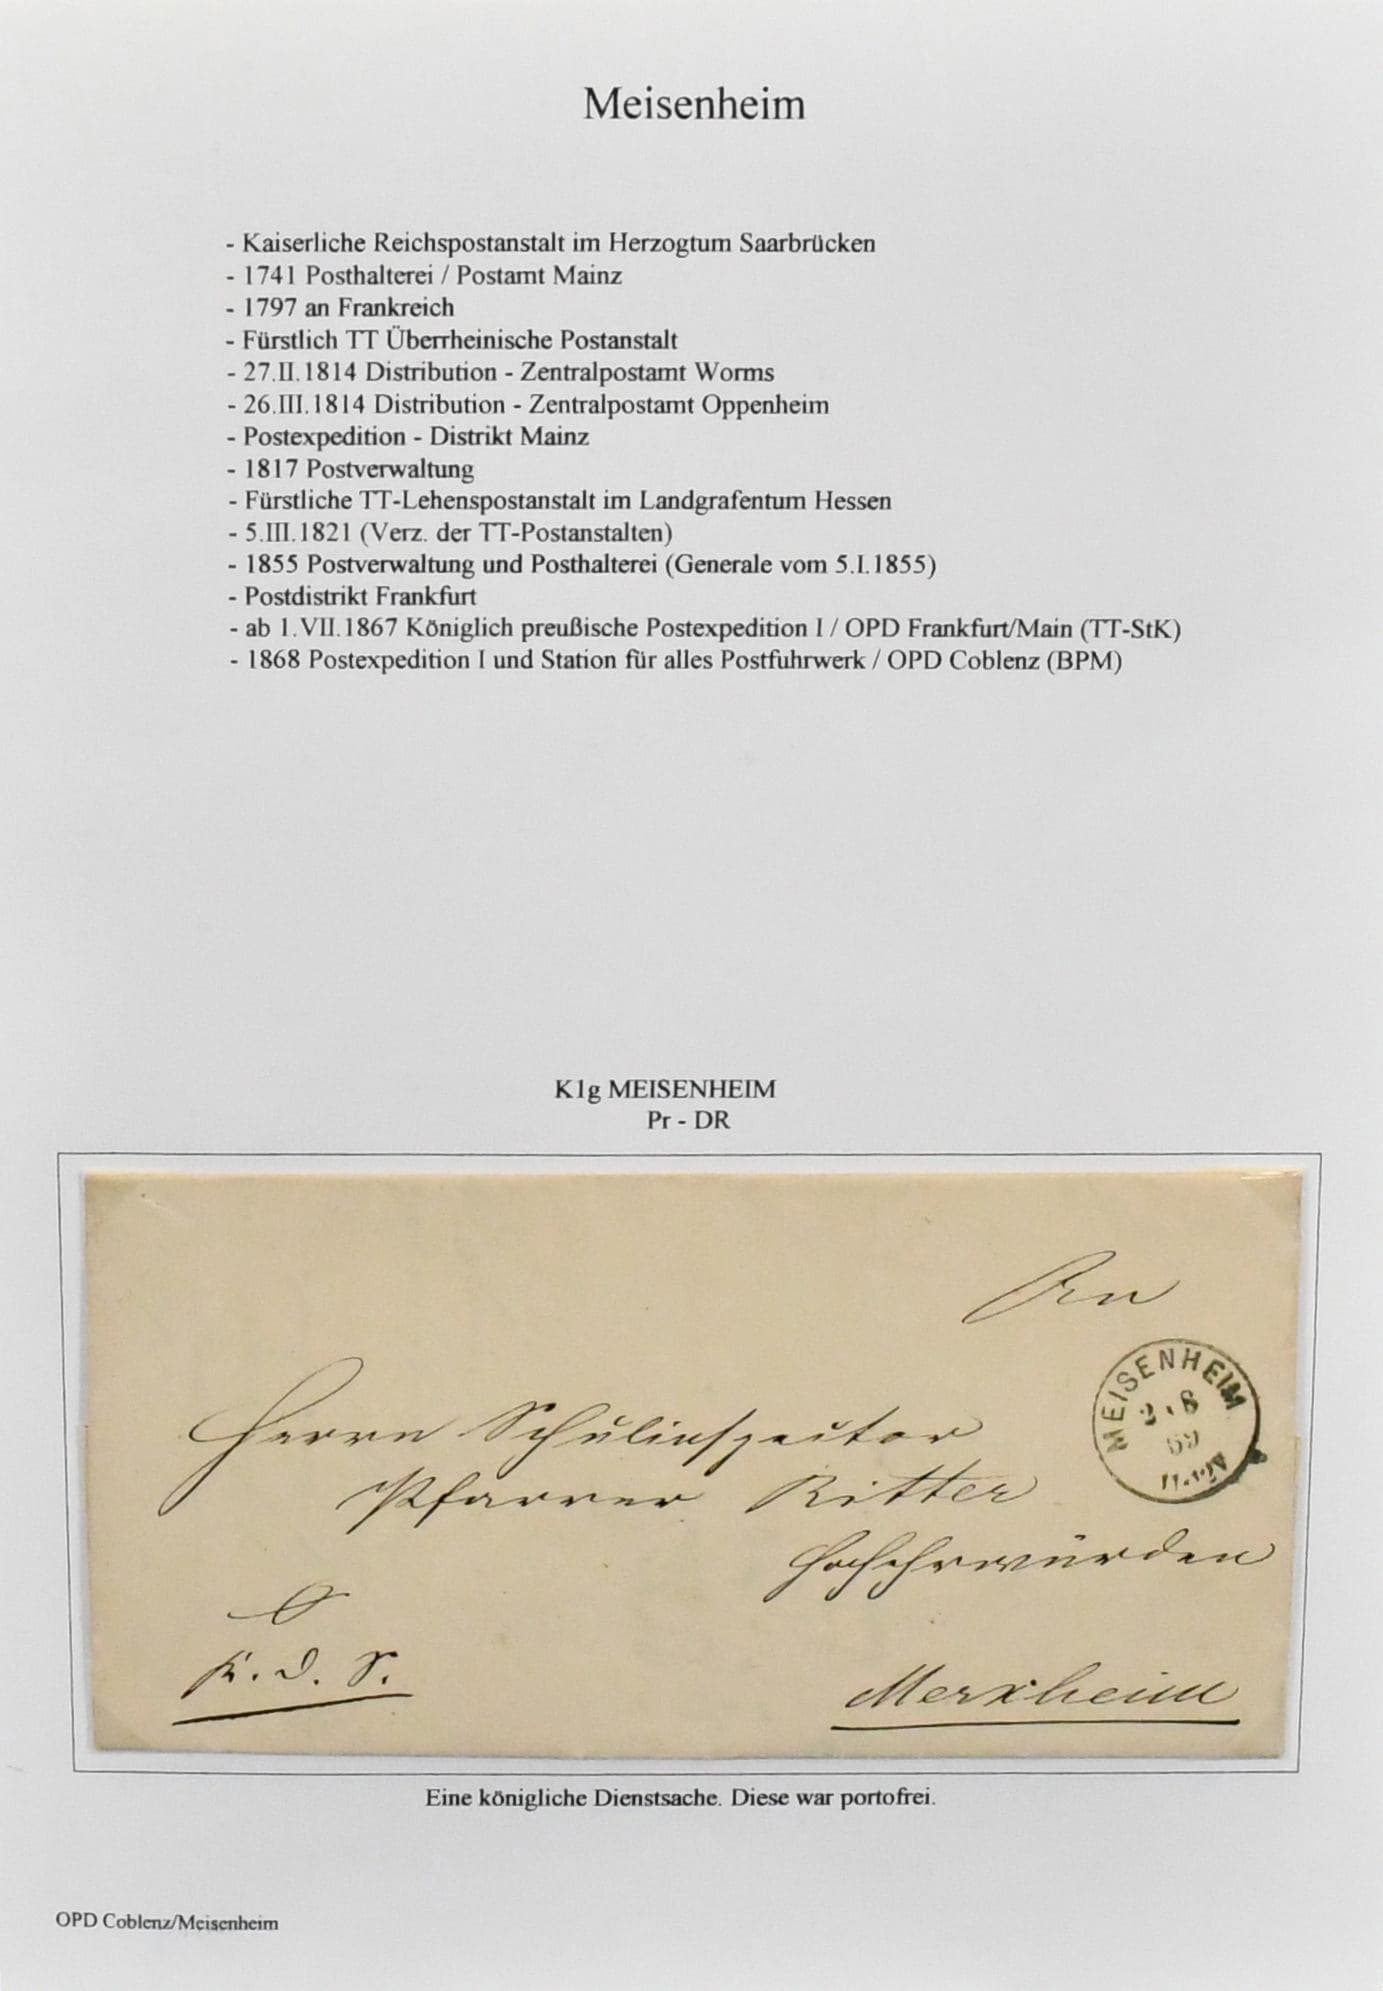 Meisenheim
- Kaiserliche Reichspostanstalt im Herzogtum Saarbrücken
- 1741 Posthalterei / Postamt Mainz
- 1797 an Frankreich
- Fürstlich TT Überrheinische Postanstalt
- 27.II.1814 Distribution - Zentralpostamt Worms
- 26.III.1814 Distribution - Zentralpostamt Oppenheim
- Postexpedition - Distrikt Mainz
- 1817 Postverwaltung
- Fürstliche TT-Lehenspostanstalt im Landgrafentum Hessen
- 5.III.1821 (Verz. der TT-Postanstalten)
- 1855 Postverwaltung und Posthalterei (Generale vom 5.I.1855)
- Postdistrikt Frankfurt
- ab 1.VII.1867 Königlich preußische Postexpedition I / OPD Frankfurt/Main (TT-StK)
- 1868 Postexpedition I und Station für alles Postfuhrwerk / OPD Coblenz (BPM)
K1g MEISENHEIM
Pr - DR
An
MEISENHEIM
2 . 8
69
Herrn Schulinspector
Pfarrer Ritter
Hochehrwürden
K. D. S.
Merxheim
Eine königliche Dienstsache. Diese war portofrei.
OPD Coblenz/Meisenheim